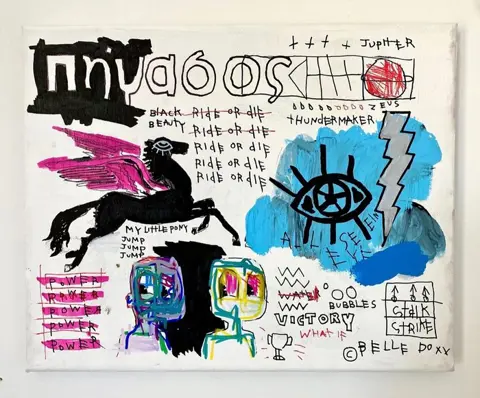 πήγασος
JUPITER
ZEUS
THUNDERMAKER
BLACK
BEAUTY
RIDE OR DIE
RIDE OR DIE
RIDE OR DIE
RIDE OR DIE
RIDE OR DIE
ALL SEEING
EYE
MY LITTLE PONY
JUMP
JUMP
JUMP
POWER
POWER
POWER
POWER
POWER
WATER
BUBBLES
VICTORY
WHAT IF
STALK
STRIKE
© BELLE DOXX